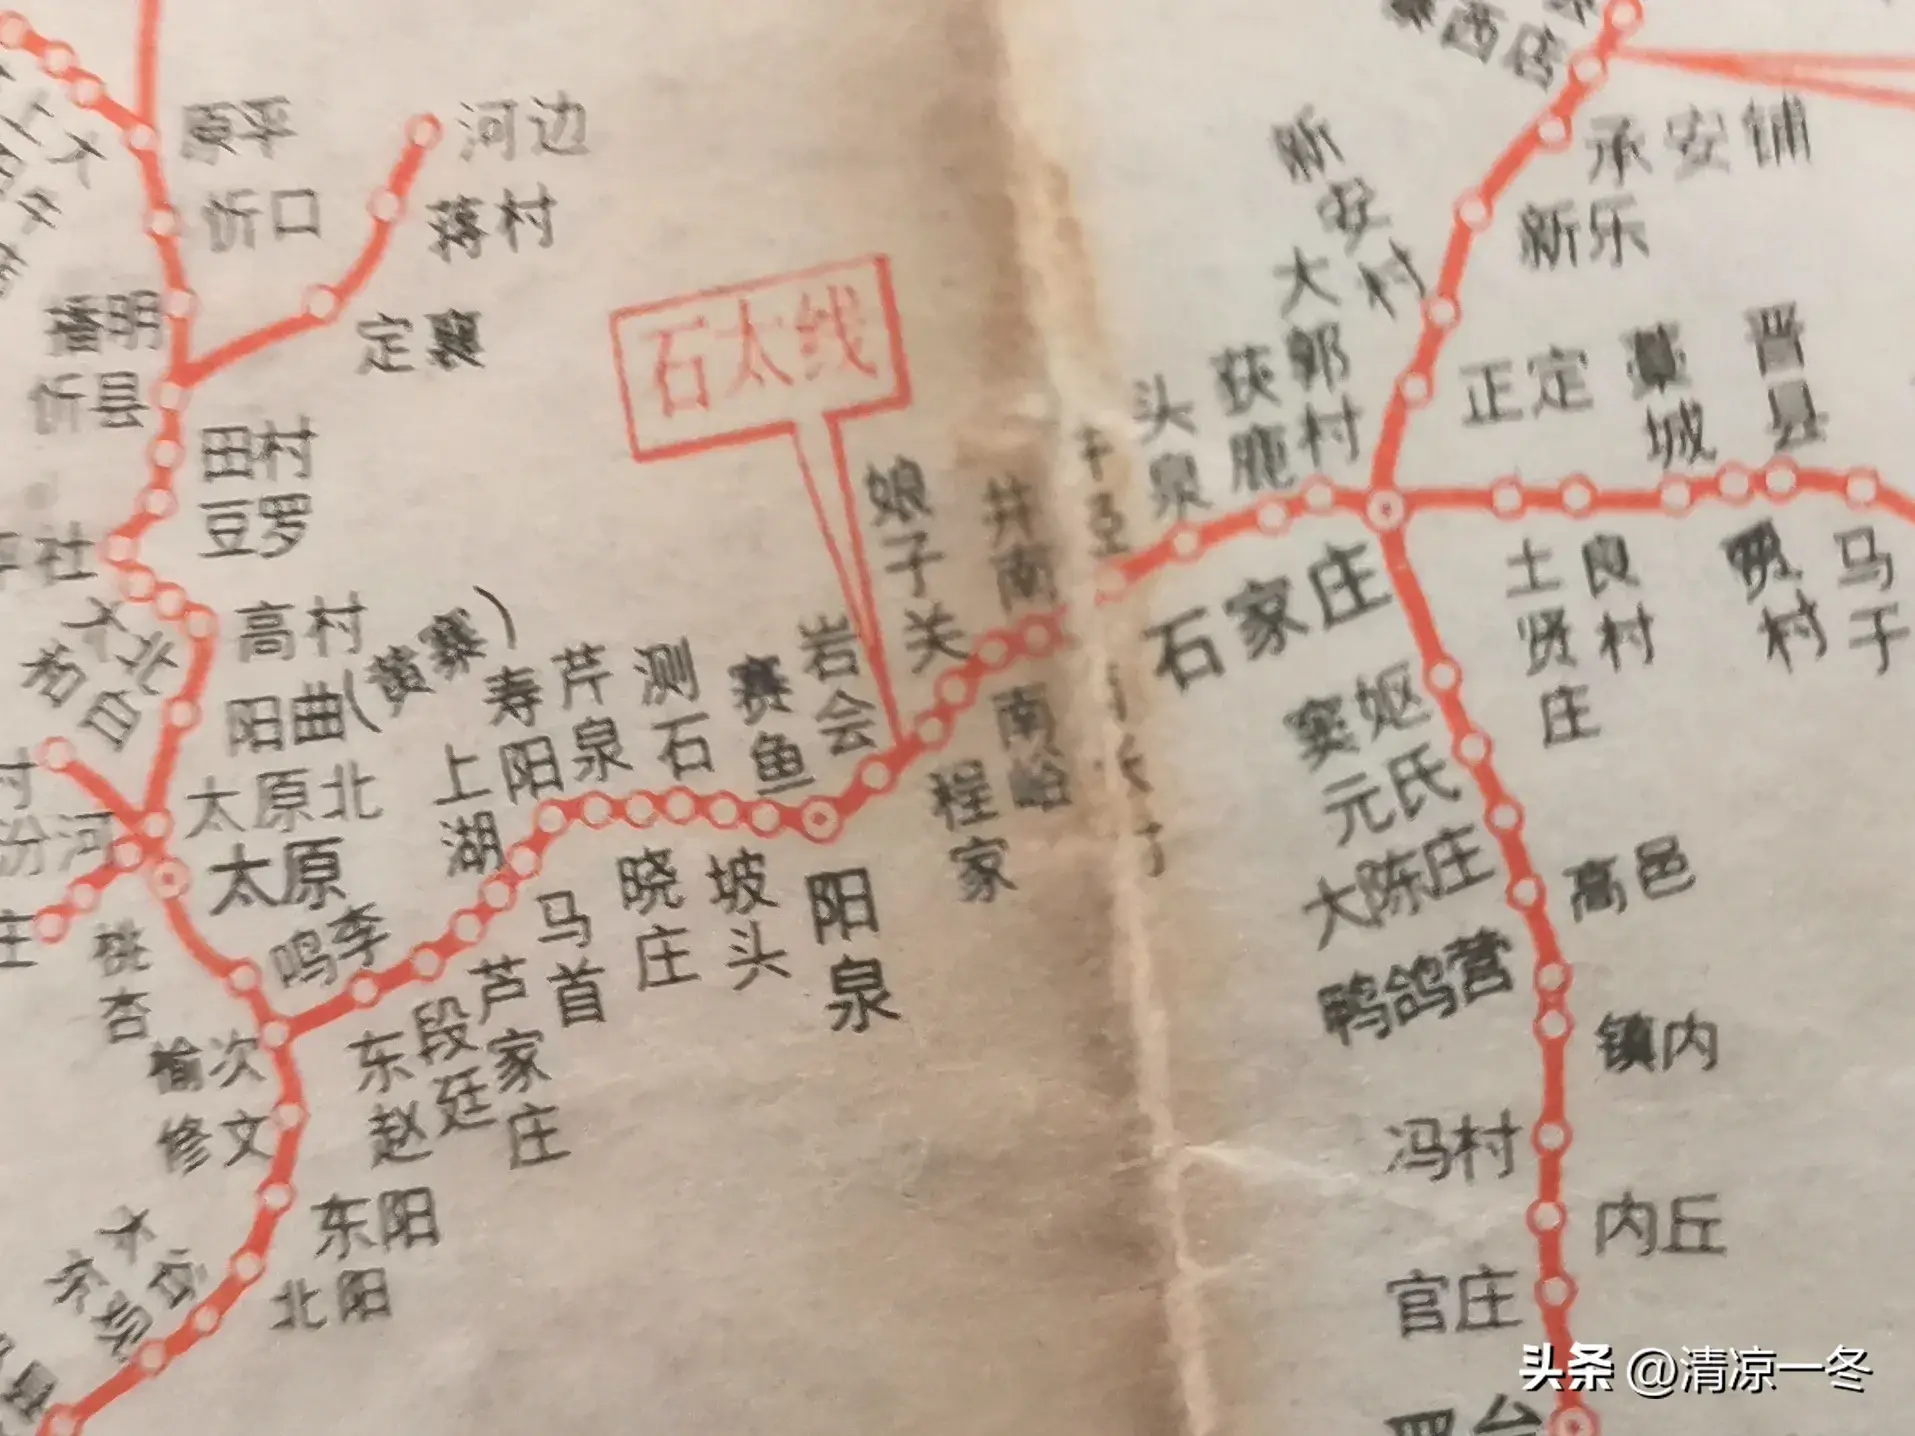 原平
忻口
播明
忻县
田村
豆罗
高村
阳曲(黄寨)
太原北
太原
汾河
北白
鸣李
榆次
修文
东阳
北阳
河边
蒋村
定襄
石太线
东赵
段廷
芦家庄
上湖
马首
寿阳
芹泉
晓庄
测石
坡头
赛鱼
阳泉
岩会
程家
娘子关
井南
南峪
头泉
获鹿
大郭村
石家庄
西店
承安铺
新乐
新安村
正定
土贤庄
良村
藁城
贾村
晋县
马于
窦妪
元氏
大陈庄
高邑
鸭鸽营
镇内
冯村
内丘
官庄
头条 @清凉一冬